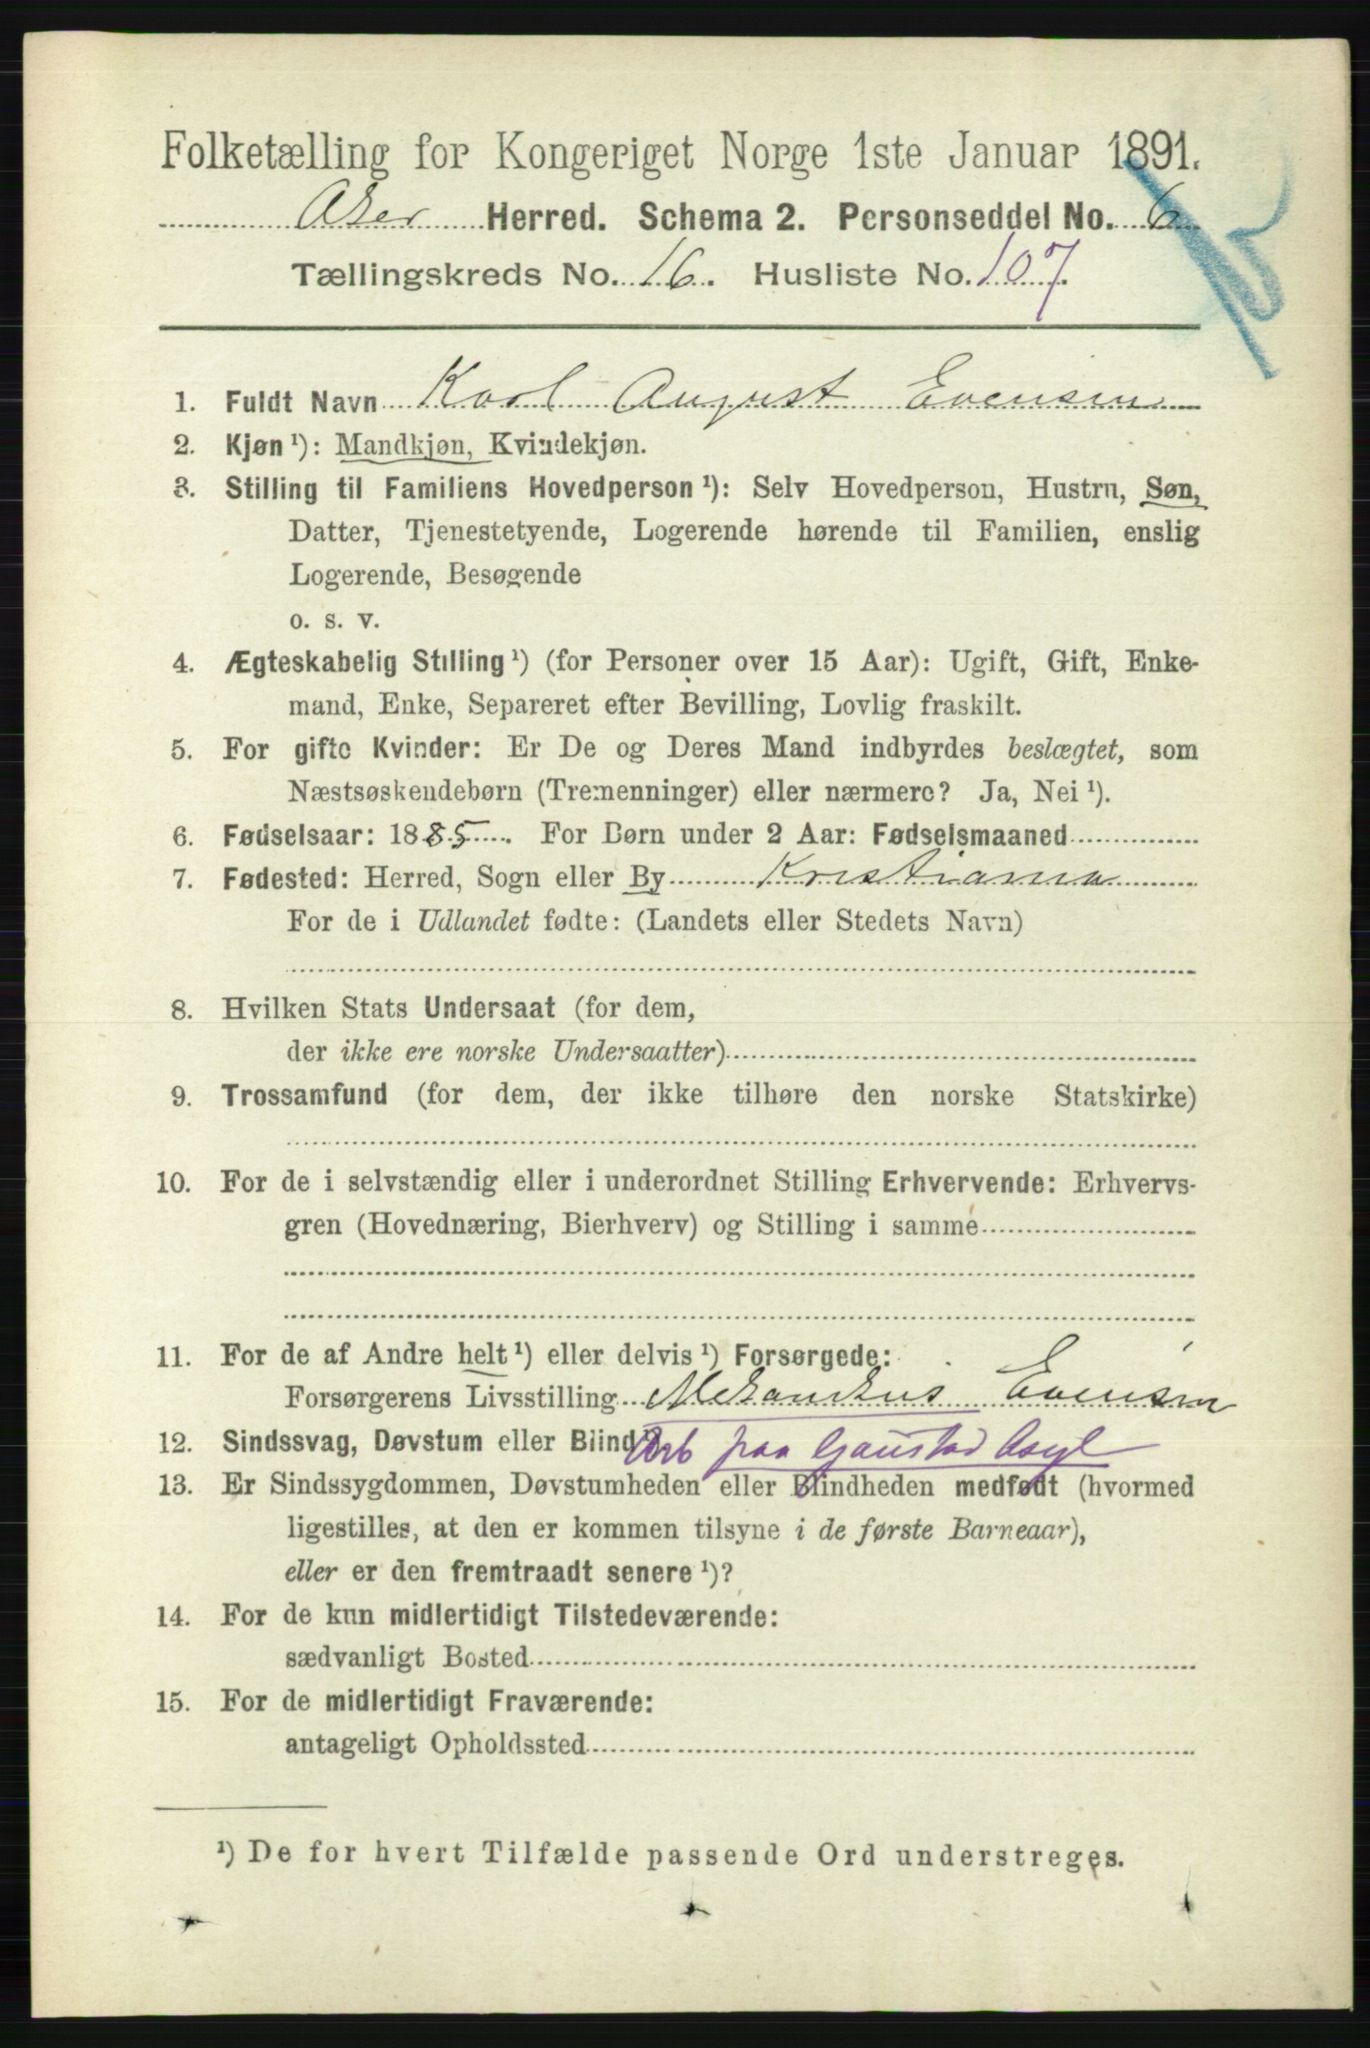 Folketælling for Kongeriget Norge 1ste Januar 1891.
Aker Herred. Schema 2. Personseddel No. 6
Tællingskreds No. 16. Husliste No. 107.
1. Fuldt Navn Karl August Evensen
2. Kjøn ¹): Mandkjøn, Kvindekjøn.
3. Stilling til Familiens Hovedperson ¹): Selv Hovedperson, Hustru, Søn,
Datter, Tjenestetyende, Logerende hørende til Familien, enslig
Logerende, Besøgende
o. s. v.
4. Ægteskabelig Stilling ¹) (for Personer over 15 Aar): Ugift, Gift, Enke-
mand, Enke, Separeret efter Bevilling, Lovlig fraskilt.
5. For gifte Kvinder: Er De og Deres Mand indbyrdes beslægtet, som
Næstsøskendebørn (Tremenninger) eller nærmere? Ja, Nei ¹).
6. Fødselsaar: 1885. For Børn under 2 Aar: Fødselsmaaned
7. Fødested: Herred, Sogn eller By Kristiania
For de i Udlandet fødte: (Landets eller Stedets Navn)
8. Hvilken Stats Undersaat (for dem,
der ikke ere norske Undersaatter)
9. Trossamfund (for dem, der ikke tilhøre den norske Statskirke)
10. For de i selvstændig eller i underordnet Stilling Erhvervende: Erhvervs-
gren (Hovednæring, Bierhverv) og Stilling i samme
11. For de af Andre helt ¹) eller delvis ¹) Forsørgede:
Forsørgerens Livsstilling Mekanikus Evensen
12. Sindssvag, Døvstum eller Blind ¹)? Arb paa Gaustad Asyl
13. Er Sindssygdommen, Døvstumheden eller Blindheden medfødt (hvormed
ligestilles, at den er kommen tilsyne i de første Barneaar),
eller er den fremtraadt senere ¹)?
14. For de kun midlertidigt Tilstedeværende:
sædvanligt Bosted
15. For de midlertidigt Fraværende:
antageligt Opholdssted
¹) De for hvert Tilfælde passende Ord understreges.